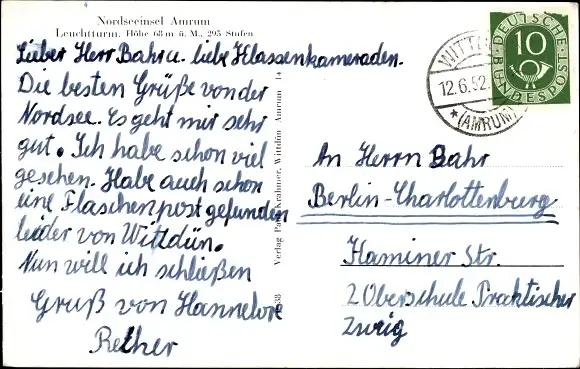 Nordseeinsel Amrum
Leuchtturm. Höhe 68 m ü. M., 295 Stufen
Lieber Herr Bahr u. liebe Klassenkameraden.
Die besten Grüße von der
Nordsee. Es geht mir sehr
gut. Ich habe schon viel
gesehen. Habe auch schon
eine Flaschenpost gefunden
leider von Wittdün.
Nun will ich schließen
Gruß von Hannelore
Rether
Verlag Paul Krahmer, Wittdün Amrum 14
38
DEUTSCHE
BUNDESPOST
10
12.6.52.
(AMRUM)
An Herrn Bahr
Berlin-Charlottenburg
Haminer Str.
2 Oberschule Praktischer
Zweig